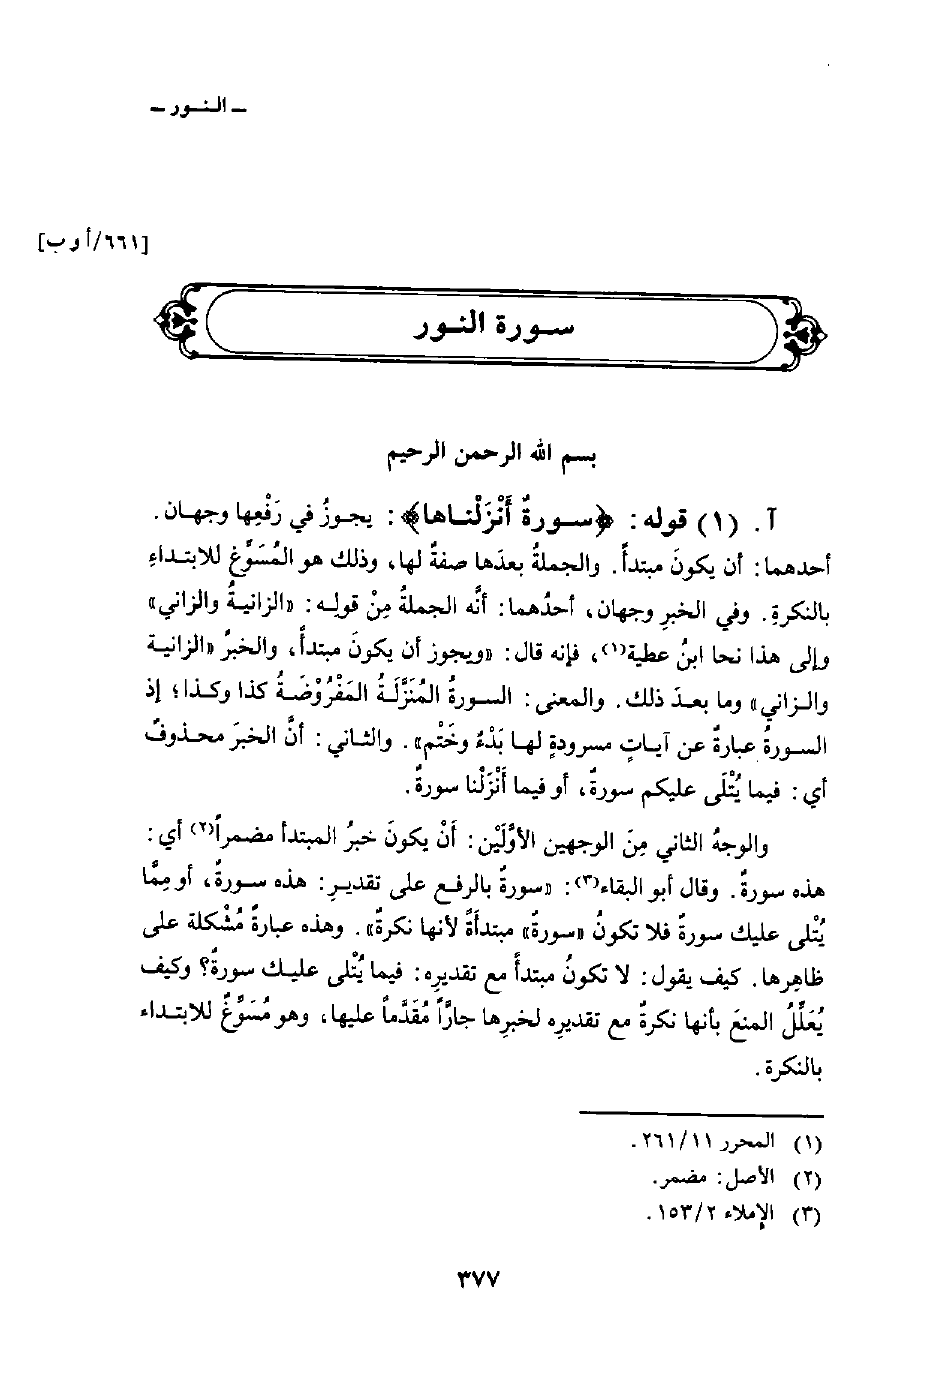 ـ النـور ـ
[٦٦١/أ و ب]
سـورة النـور
بسم الله الرحمن الرحيم
آ. (١) قوله: ﴿سـورةٌ أَنْزَلْنـاها﴾: يجـوزُ في رَفْعِها وجهـان.
أحدهما: أن يكونَ مبتدأً. والجملةُ بعدَها صفةٌ لها، وذلك هو المُسَوِّغ للابتـداءِ
بالنكرةِ. وفي الخبرِ وجهان، أحدُهما: أنَّه الجملةُ مِنْ قولِـه: «الزانيـةُ والزاني»
وإلى هذا نحا ابنُ عطية(١)، فإنه قال: «ويجوز أن يكونَ مبتدأً، والخبرُ «الزانيـة
والـزاني» وما بعـدَ ذلك. والمعنى: السـورةُ المُنَزَّلَـةُ المَفْرُوْضَـةُ كذا وكـذا؛ إذ
السـورةُ عبارةٌ عن آيـاتٍ مسرودةٍ لهـا بَدْءٌ وخَتْم». والثـاني: أنَّ الخبرَ محـذوفٌ
أي: فيما يُتْلَى عليكم سورةٌ، أو فيما أَنْزَلْنا سورةٌ.
والوجهُ الثاني مِنَ الوجهين الأوَّلَيْن: أَنْ يكونَ خبرُ المبتدأ مضمراً(٢) أي:
هذه سورةٌ. وقال أبو البقاء(٣): «سورةٌ بالرفـع على تقديـرِ: هذه سـورةٌ، أو مِمَّا
يُتْلى عليك سورةٌ فلا تكونُ «سورةٌ» مبتدأةً لأنها نكرةٌ». وهذه عبارةٌ مُشْكلة على
ظاهِرها. كيف يقول: لا تكونُ مبتدأً مع تقديرِه: فيما يُتْلى عليـك سورةٌ؟ وكيف
يُعَلِّلُ المنعَ بأنها نكرةٌ مع تقديرِه لخبرِها جارَّاً مُقَدَّماً عليها، وهو مُسَوِّغٌ للابتـداء
بالنكرة.
(١) المحرر ٢٦١/١١.
(٢) الأصل: مضمر.
(٣) الإملاء ١٥٣/٢.
٣٧٧